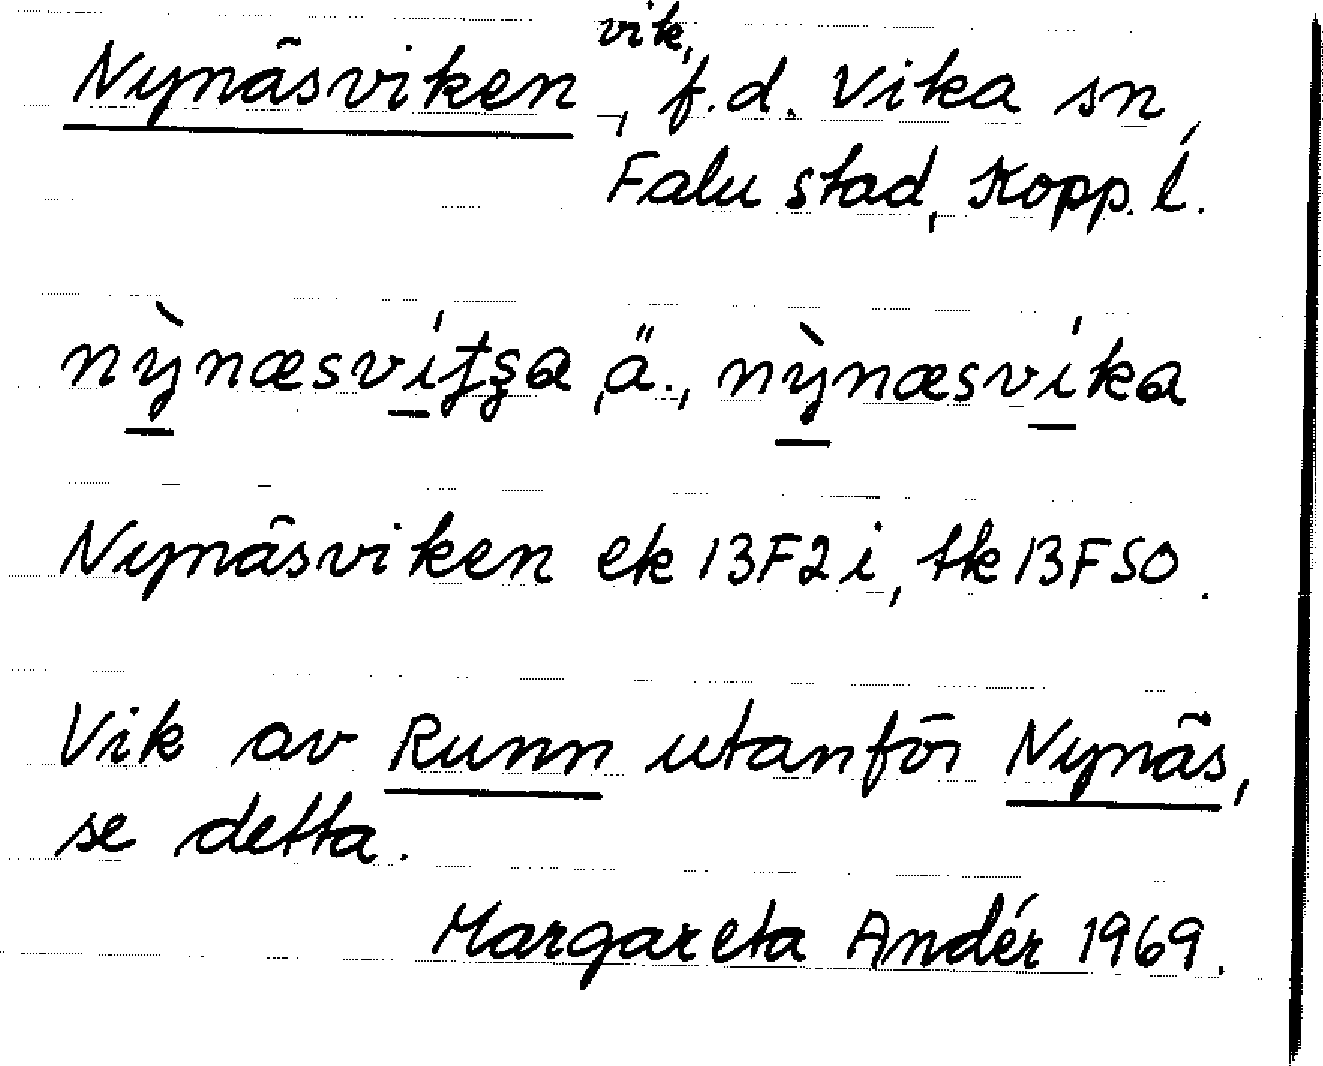 vik,
Nynäsviken, f.d. Vika sn,
Falu stad, Kopp. l.
nỳnæsvítʂa, ä., nỳnæsvíka
Nynäsviken ek 13F2i, tk 13FSO.
Vik av Runn utanför Nynäs,
se detta.
Margareta Andér 1969.